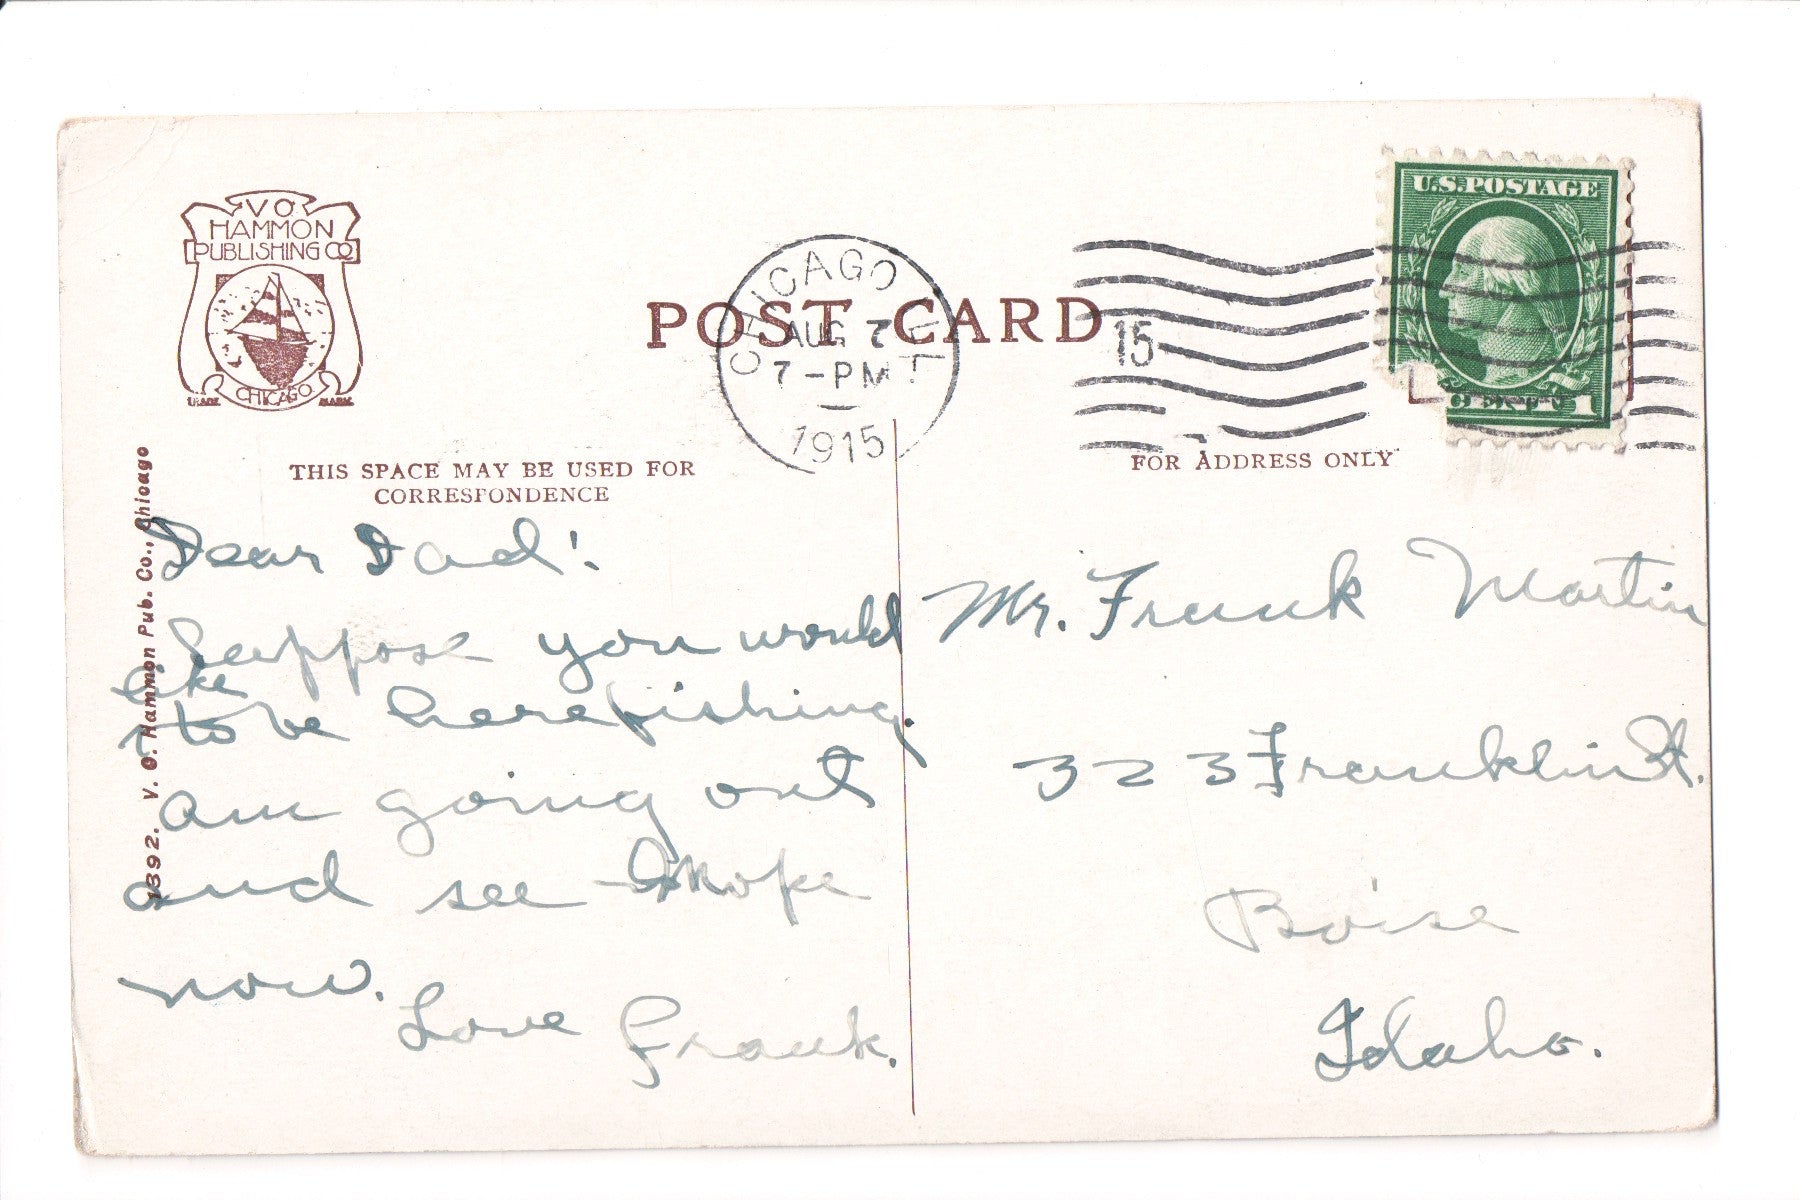 V O
HAMMON
PUBLISHING CO
CHICAGO
TRADE MARK
POST CARD
CHICAGO, ILL.
AUG 7
7-PM
1915
15
U.S. POSTAGE
1
THIS SPACE MAY BE USED FOR
CORRESPONDENCE
FOR ADDRESS ONLY
1392. V. O. Hammon Pub. Co., Chicago
Dear Dad:
Suppose you would
like
to be here fishing.
am going out
and see
now.
Love Frank.
Mr. Frank Martin
323 Franklin St.
Boise
Idaho.